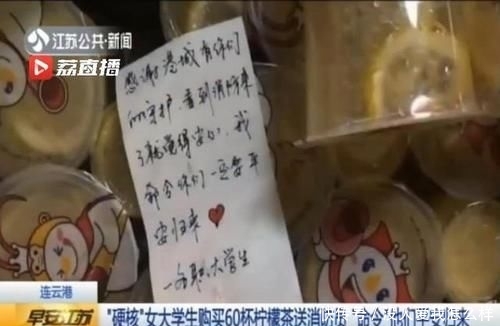 江苏公共·新闻
荔直播
感谢港城有你们
的守护,看到消防来
了就觉得安心,我
命令你们一定要平
安归来
一名 大学生
连云港
早安江苏
"硬核"女大学生购买60杯柠檬茶送消防队
快传号